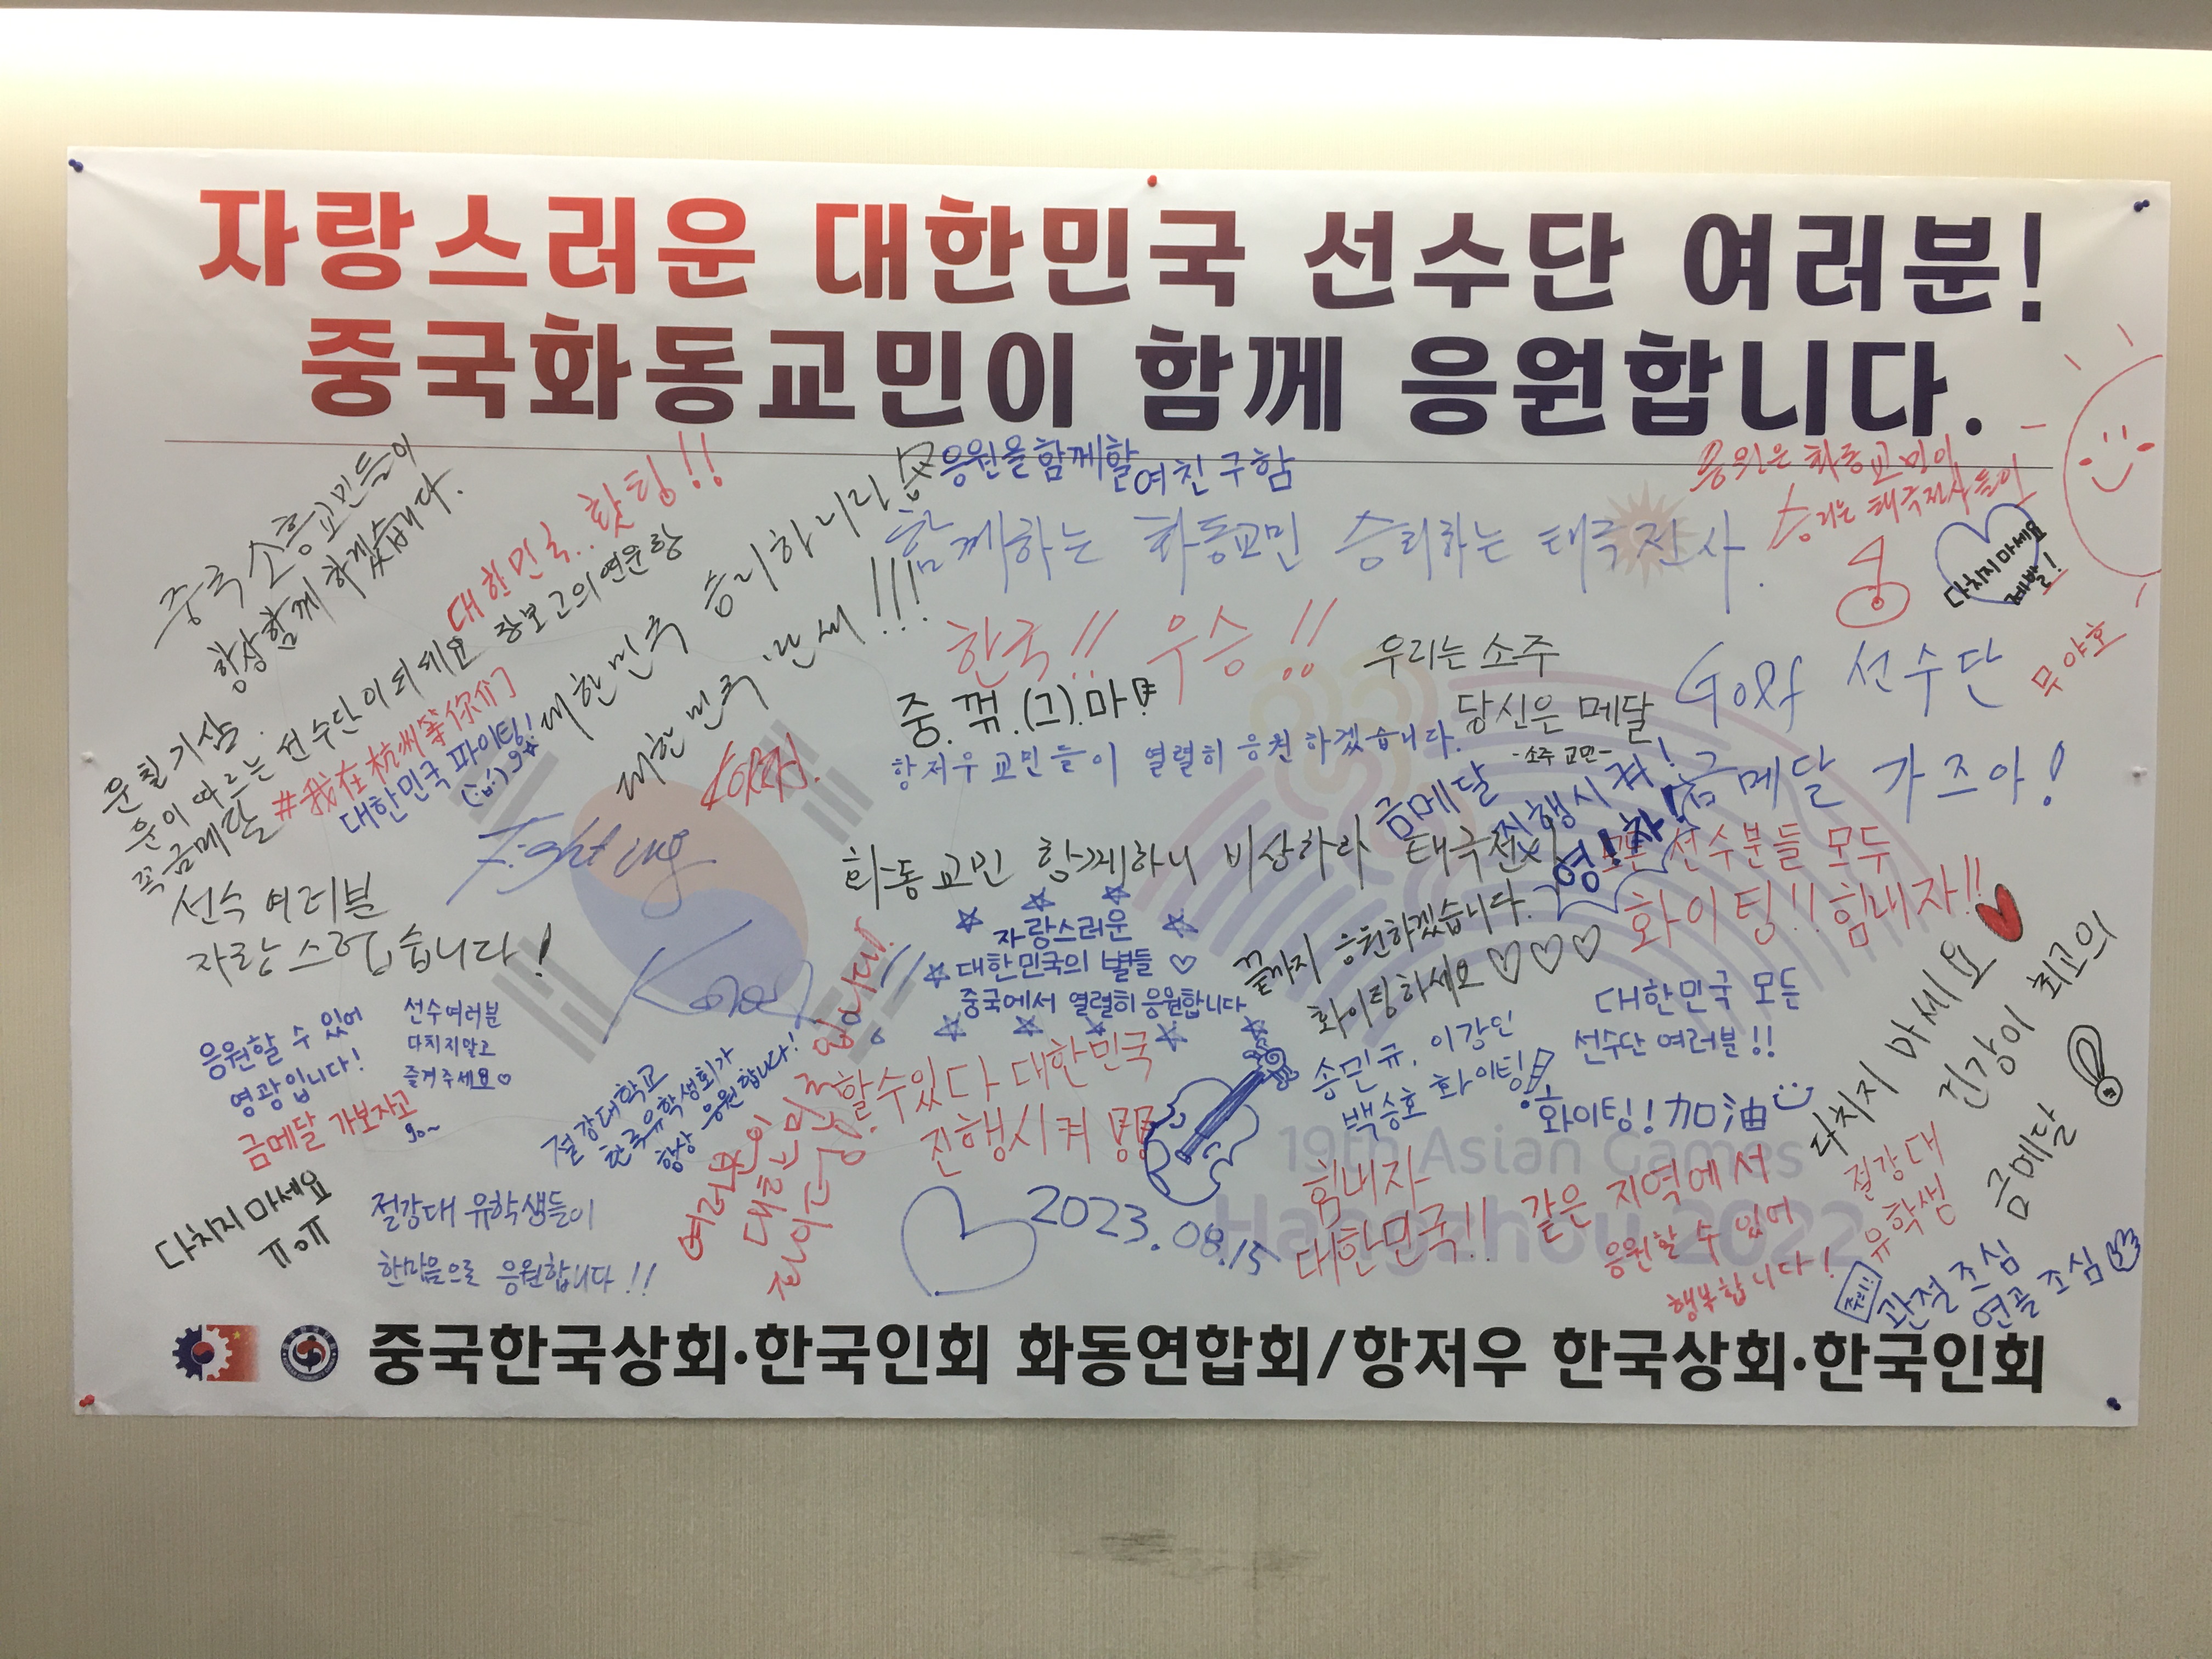 자랑스러운 대한민국 선수단 여러분!
중국화동교민이 함께 응원합니다.
중국 소흥교민들이
항상 함께 하겠습니다.
대한민국.. 홧팅!!
응원을 함께할
여친 구함
함께하는 화동교민 승리하는 태극전사.
응원은 화동교민이
승리는 태극전사들이
다치지마세요
제발!
운칠기삼.
운이 따르는 선수단이 되세요 장보고의 연운항
꼭 금메달
#我在杭州等你们
대한민국 파이팅!
대한민국 승리하리라
대한민국 만세!!!
한국!! 우승!!
중.꺾.(그).마
항저우 교민들이 열렬히 응원하겠습니다.
우리는 소주
당신은 메달
-소주 교민-
Golf 선수단
금메달 가즈아!
무야호
금메달
진행시켜!
영!차!
Fighting
Korea
화동교민 함께하니 비상하라 태극전사
모든 선수분들 모두
화이팅!! 힘내자!!
선수 여러분
자랑스럽습니다!
자랑스러운
대한민국의 별들 ♡
중국에서 열렬히 응원합니다
끝까지 응원하겠습니다.
화이팅하세요 ♡♡♡
대한민국 모든
선수단 여러분!!
화이팅! 加油
다치지 마세요
건강이 최고의
금메달
응원할 수 있어
영광입니다!
선수여러분
다치지말고
즐겨주세요♡
금메달 가보자고
go~
절강대학교
한국유학생회가
항상 응원합니다!
여러분이
대한민국
할수있다 대한민국
진행시켜
송민규, 이강인
백승호 화이팅!
다치지 마세요
ㅠㅇㅠ
절강대 유학생들이
한마음으로 응원합니다!!
2023.09.15
힘내자
대한민국!!
같은 지역에서
응원할 수 있어
행복합니다!
절강대
유학생
관절 조심
연골 조심
19th Asian Games
Hangzhou 2022
중국한국상회·한국인회 화동연합회/항저우 한국상회·한국인회